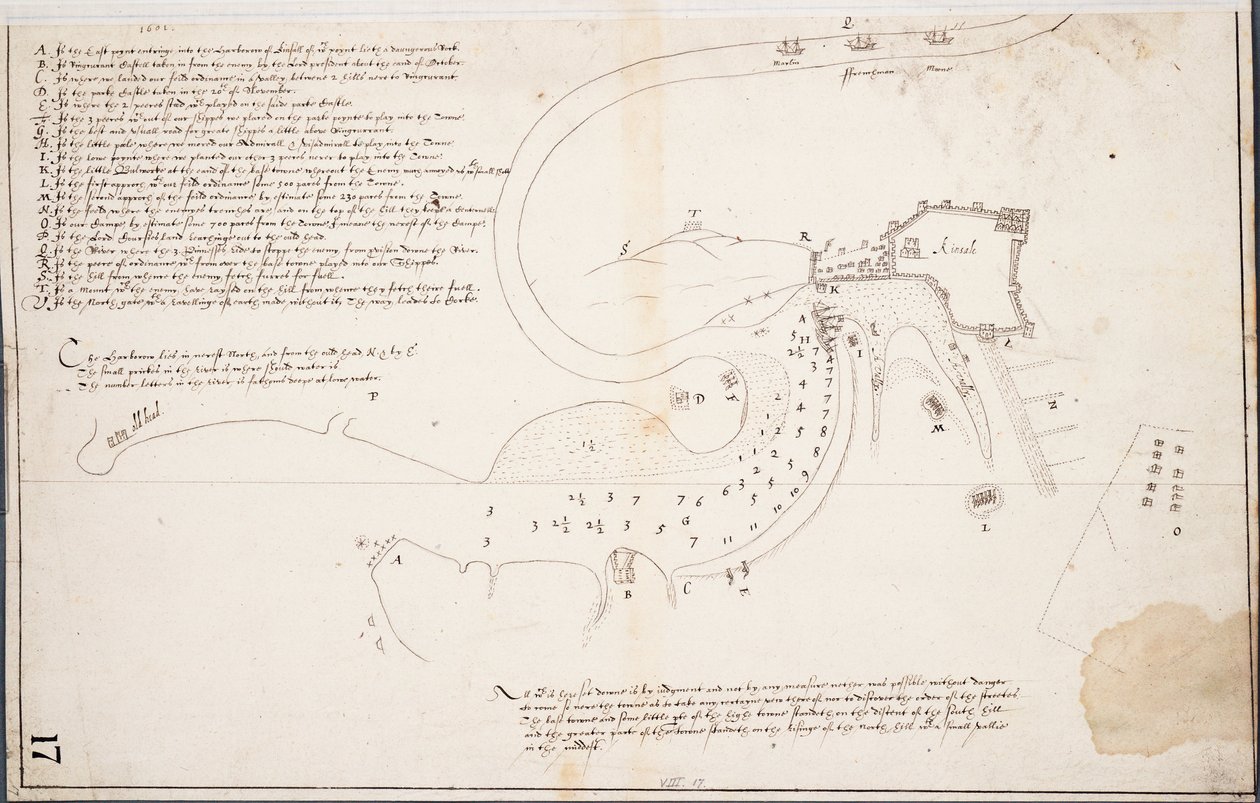 1601.
A. Is the East poynt entringe into the Harborow of Kinsall of wch poynt lieth a daungerous Rock.
B. Is Ringcurrant Castell taken in from the enemy by the Lord president about the eand of October.
C. Is where we landed our feild ordinance in a valley, betwene 2 hills nere to Ringcurrant.
D. Is the parke Castle taken in the 20th of November.
E. Is where the 2 peeces stood wch played on the saide parke Castle.
F. Is the 3 peeces wch out of our shippes we placed on the parke poynte to play into the Towne.
G. Is the best and usuall road for greate shippes a little above Ringcurrant.
H. Is the little pole where we mored our Admirall & Visadmirall to play into the Towne
I. Is the lowe poynte where we planted our other 3 peeces nerer to play into the Towne.
K. Is the little Bulworke at the eand of the base towne whereout the Enemy was anoyed us wth small shott
L. Is the first approch wth our feild ordinance some 500 paces from the Towne.
M. Is the second approch of the feild ordinance by estimate some 230 paces from the Towne.
N. Is the feeld where the enemyes trenches are, and on the top of the hill they keepe a Centenell.
O. Is our Campe, by estimate some 700 paces from the Towne, I meane the nerest of the Campe.
P. Is the Lord Coursies land reachinge out to the ould head.
Q. Is the River where the 3 Pinnisses ride to stoppe the enemy from passing downe the River.
R. Is the peece of ordinance wch from over the base towne played into our Shippes.
S. Is the hill from whence the enemy fetch furres for fuell.
T. Is a Mount wch the enemy have raysed on the hill from whence they fetch theire fuell.
V. Is the North gate wth a ravellinge of earth made without it, The way leades to Corke.
The Harborow lies in nerest North, and from the ould head, N. & by E.
The small prickes in the river is where should water is
The number letters in the river is fathoms deepe at lowe water.
P
old head
Q
Marlin
ffrenchman
Moone
T
S
R
K
Kinsale
V
A
5 H
2½ 7
3 4
7
4 7
4 7
7
5 8
8
I
a valley
M
N
D
F
2
1
2
1
1
2
2
5
9
10
10
11
11
1½
3 6
5 5
3
2½ 3 7 7 6
3 2½ 2½ 3 5 G
3 7
A
B
C
E
L
O
All wch is here set downe is by iudgment and not by any measure nether was possible without danger
to come so nere the towne as to take any certayne vew thereof nor to discover the order of the streetes
The base towne and some little pte of the highe towne standeth on the discent of the south hill
and the greater parte of the Towne standeth on the risinge of the north hill wth a small vallie
in the middest.
17
VIII. 17.